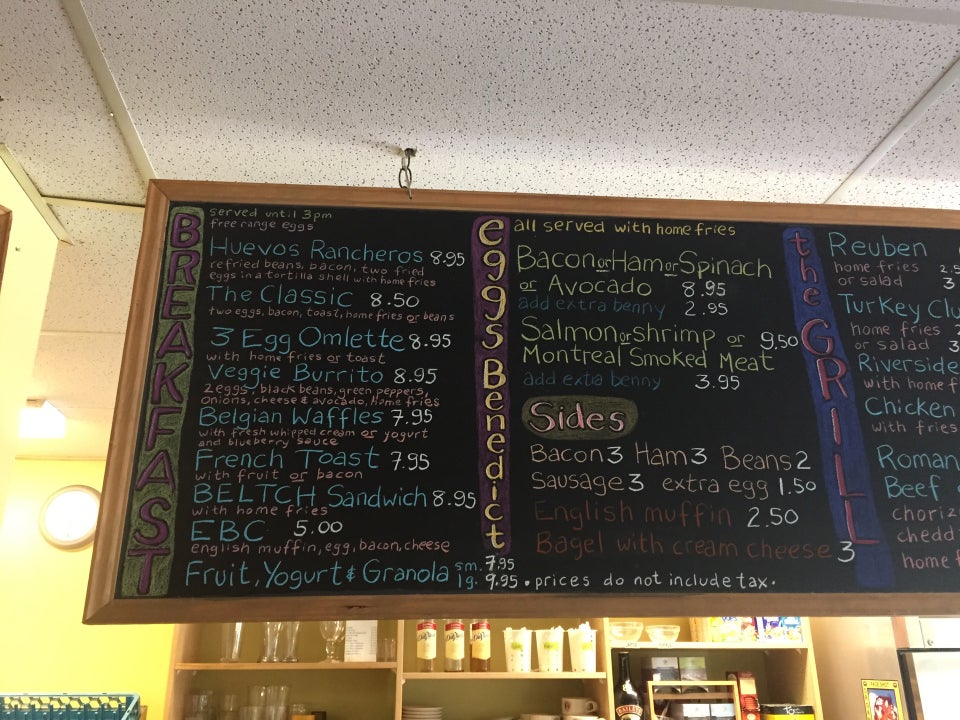 BREAKFAST
served until 3pm
free range eggs
Huevos Rancheros 8.95
refried beans, bacon, two fried
eggs in a tortilla shell with home fries
The Classic 8.50
two eggs, bacon, toast, home fries or beans
3 Egg Omlette 8.95
with home fries or toast
Veggie Burrito 8.95
2 eggs, black beans, green peppers,
onions, cheese & avocado, Home fries
Belgian Waffles 7.95
with fresh whipped cream or yogurt
and blueberry sauce
French Toast 7.95
with fruit or bacon
BELTCH Sandwich 8.95
with home fries
EBC 5.00
english muffin, egg, bacon, cheese
Fruit, Yogurt & Granola sm. 7.95
lg. 9.95
eggs Benedict
all served with home fries
Bacon or Ham or Spinach
or Avocado 8.95
add extra benny 2.95
Salmon or shrimp or 9.50
Montreal Smoked Meat
add exta benny 3.95
Sides
Bacon 3 Ham 3 Beans 2
Sausage 3 extra egg 1.50
English muffin 2.50
Bagel with cream cheese 3
• prices do not include tax.
the GRILL
Reuben
home fries
or salad 3
Turkey Clu
home fries
or salad
Riverside
with home f
Chicken
with fries
Roman
Beef
chori
chedd
home f